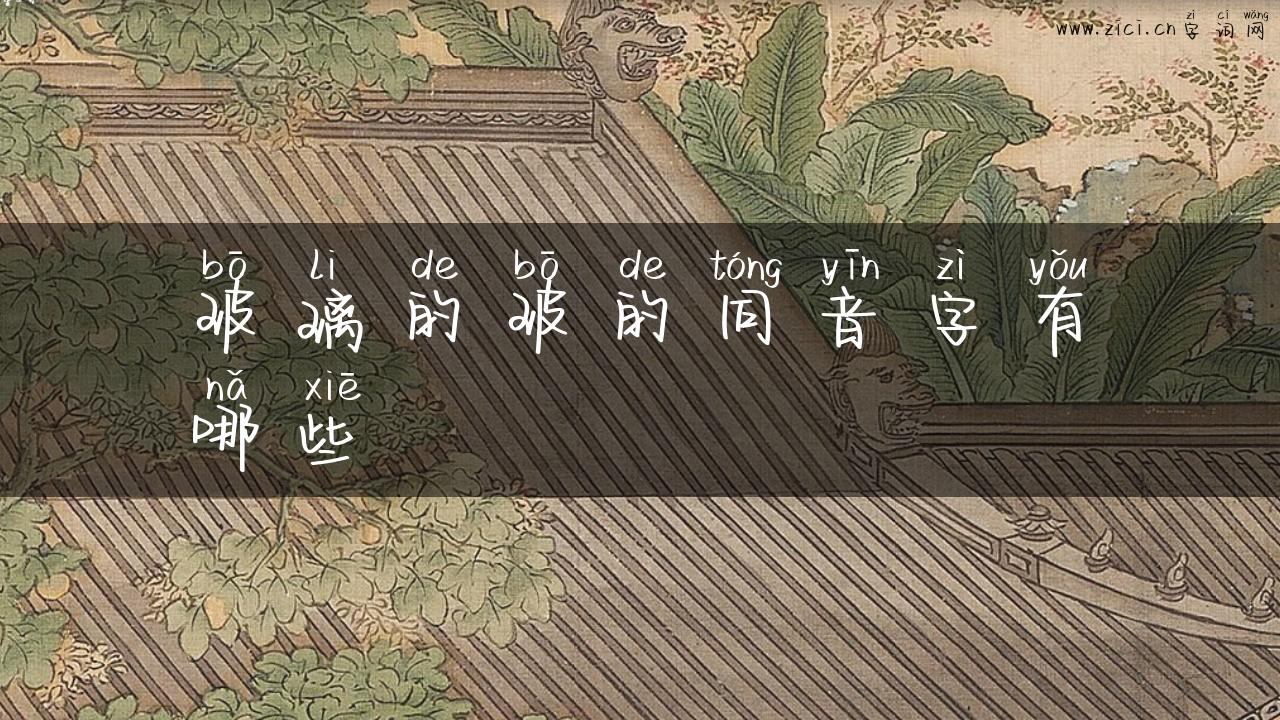 zì cí wǎng
www.zici.cn 字 词 网
bō li de bō de tóng yīn zì yǒu
玻 璃 的 玻 的 同 音 字 有
nǎ xiē
哪 些